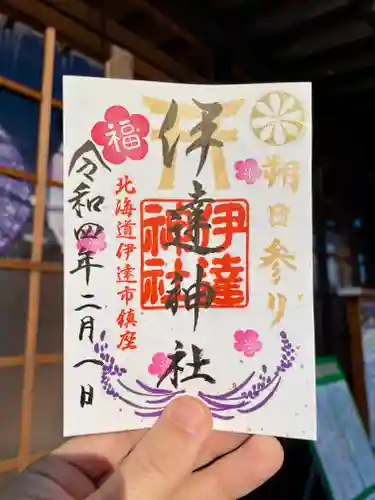 朔日参り
伊達神社
伊達
神社
北海道伊達市鎮座
福
令和四年二月八日